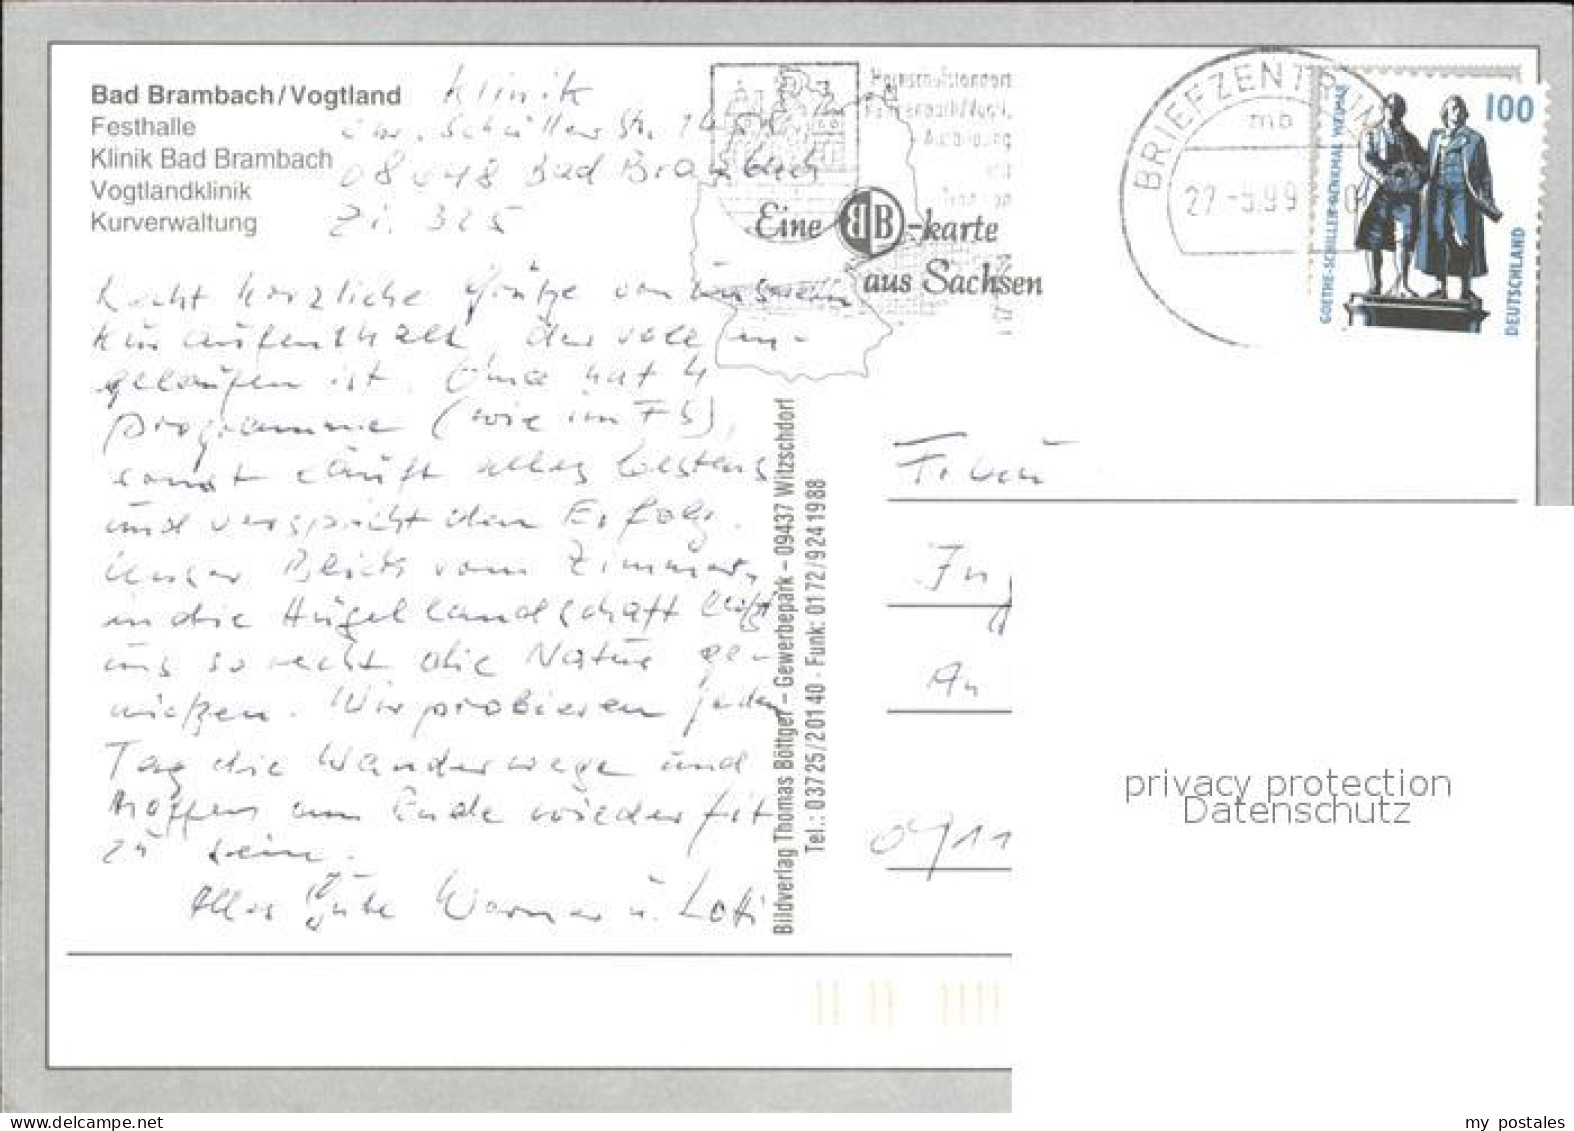 Bad Brambach/Vogtland
Festhalle
Klinik Bad Brambach
Vogtlandklinik
Kurverwaltung
Klinik
Chr. Schüller Str.
08648 Bad Brambach
Zi. 325
Eine BB-karte
aus Sachsen
BRIEFZENTRUM
mb
27.-5.99
100
GOETHE-SCHILLER-DENKMAL WEIMAR
DEUTSCHLAND
Recht herzliche Grüße von unserem
Kuraufenthalt, der voll an-
gelaufen ist. Oma hat 4
Programme (wie im FS),
sonst läuft alles bestens
und verspricht den Erfolg.
Unser Blick vom Zimmer
in die Hügellandschaft läßt
uns so recht die Natur ge-
nießen. Wir probieren jeden
Tag die Wanderwege und
hoffen am Ende wieder fit
zu sein.
Alles Gute Werner u. Lotti
Bildverlag Thomas Böttger – Gewerbepark – 09437 Witzschdorf
Tel.: 03725/20140 · Funk: 0172/9241988
Frau
In
An
0911
privacy protection
Datenschutz
my postales